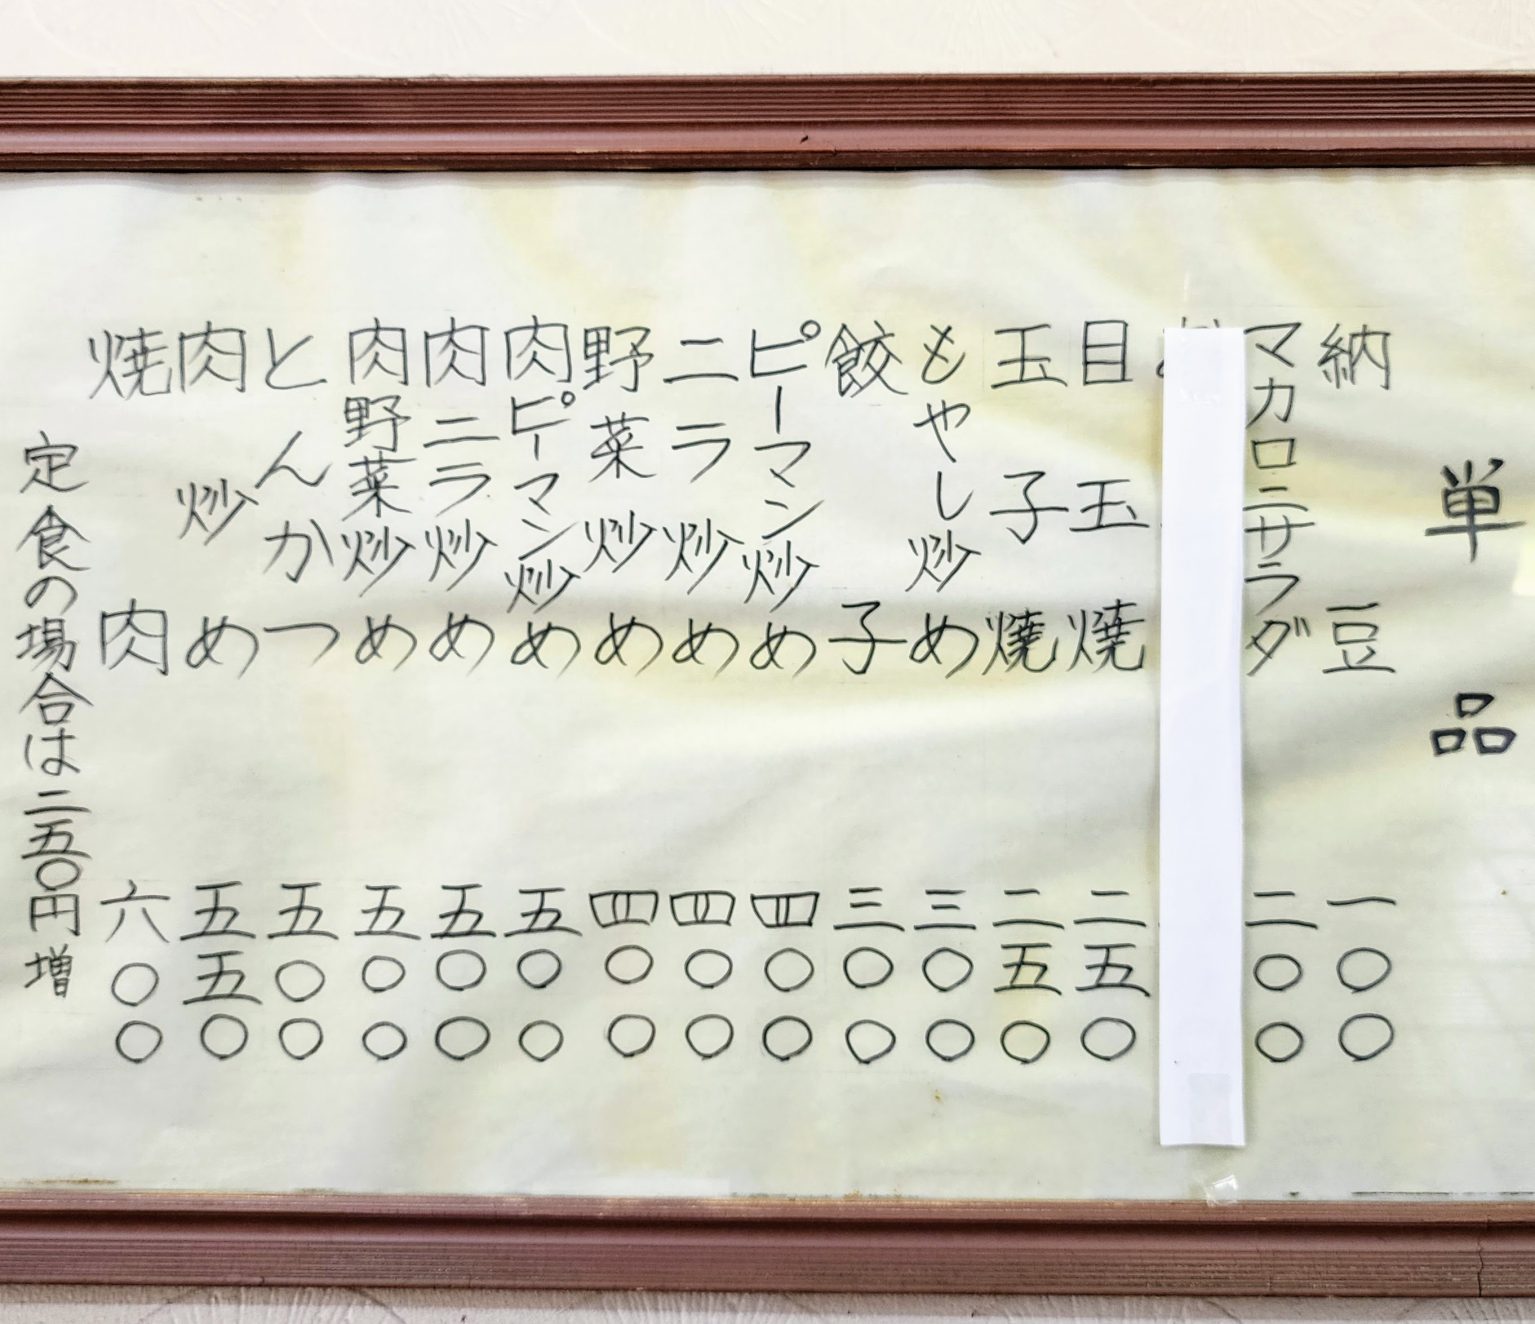 単品
納豆 一〇〇
マカロニサラダ 二〇〇
目玉焼 二五〇
玉子焼 二五〇
もやし炒め 三〇〇
餃子 三〇〇
ピーマン炒め 四〇〇
ニラ炒め 四〇〇
野菜炒め 四〇〇
肉ピーマン炒め 五〇〇
肉ニラ炒め 五〇〇
肉野菜炒め 五〇〇
とんかつ 五〇〇
肉炒め 五五〇
焼肉 六〇〇
定食の場合は二五〇円増